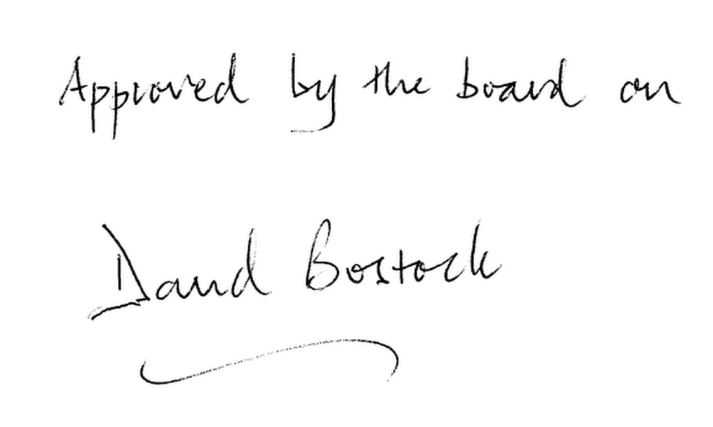 Approved by the board on
David Bostock